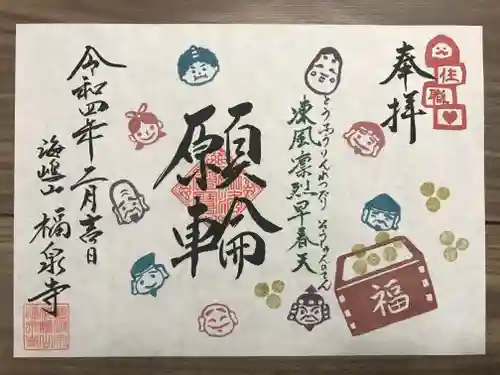 奉拝
住職
凍風凛烈早春天
とうふうりんれつたり そうしゅんのてん
願輪
車
福
令和四年二月吉日
海嶋山 福泉寺